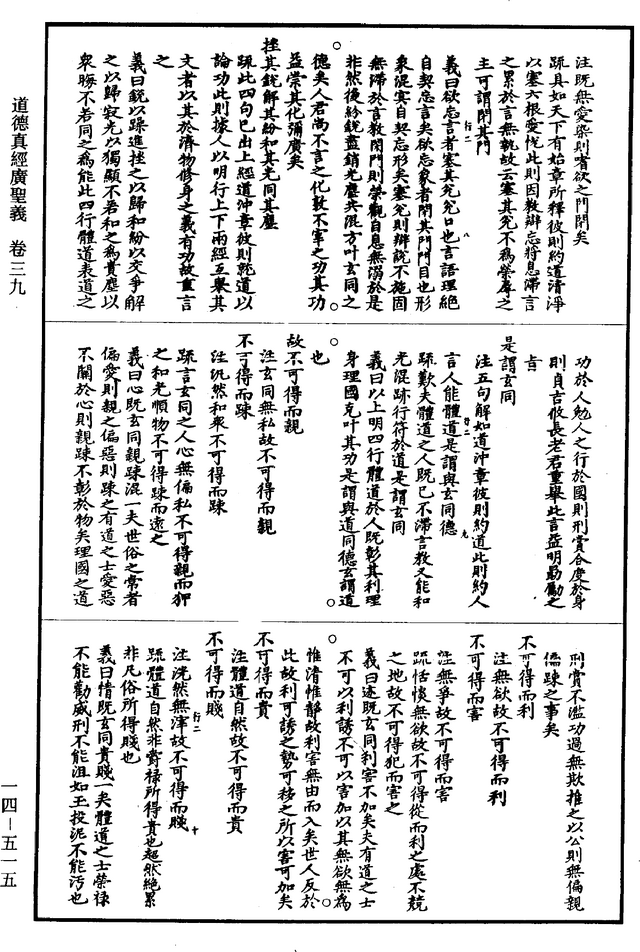 道德真經廣聖義 卷三九
一四—五一五
注既無愛染則嗜欲之門閉矣
疏具如天下有始章所釋彼則約道清淨
以塞六根愛悅此則因教辯忘將息滯言
之累於言無執故云塞其兊不為榮辱之
主可謂閉其門
義曰欲忘言者塞其兊兊口也言語理絕
自契忘言矣欲忘象者閉其門門目也形
象混冥自契忘形矣塞兊則辯說不施固
無滯於言教閉門則榮觀自息無溺於是
非然後紛銳盡銷光塵共混方叶玄同之
德矣人君尚不言之化敷不宰之功其功
益崇其化彌廣矣
挫其銳解其紛和其光同其塵
疏此四句已出上經道沖章彼則就道以
論功此則據人以明行上下兩經互舉其
文者以其於濟物修身之義有功故重言
之
義曰銳以躁進挫之以歸和紛以交爭解
之以歸寂光以獨顯不若和之為貴塵以
衆晦不若同之為能此四行體道表道之
功於人勉人之行於國則刑賞合度於身
則貞吉攸長老君重舉此言益明勗勵之
旨
是謂玄同
注五句解如道沖章彼則約道此則約人
言人能體道是謂與玄同德
疏歎夫體道之人既已不滯言教又能和
光混跡行符於道是謂玄同
義曰以上明四行體道於人既彰其利理
身理國克叶其功是謂與道同德玄謂道
也
故不可得而親
注玄同無私故不可得而親
不可得而踈
注汎然和衆不可得而踈
疏言玄同之人心無偏私不可得親而狎
之和光順物不可得踈而遠之
義曰心既玄同親踈混一夫世俗之常者
偏愛則親之偏惡則踈之有道之士愛惡
不關於心則親踈不彰於物矣理國之道
刑賞不濫功過無欺推之以公則無偏親
偏踈之事矣
不可得而利
注無欲故不可得而利
不可得而害
注無爭故不可得而害
疏恬惔無欲故不可得從而利之處不競
之地故不可得犯而害之
義曰迹既玄同利害不加矣夫有道之士
不可以利誘不可以害加以其無欲無為
惟清惟靜故利害無由而入矣世人反於
此故利可誘之勢可移之所以害可加矣
不可得而貴
注體道自然故不可得而貴
不可得而賤
注洸然無滓故不可得而賤
疏體道自然非爵祿所得貴也超然絶累
非凡俗所得賤也
義曰情既玄同貴賤一矣體道之士榮祿
不能勸威刑不能沮如玉投泥不能污也